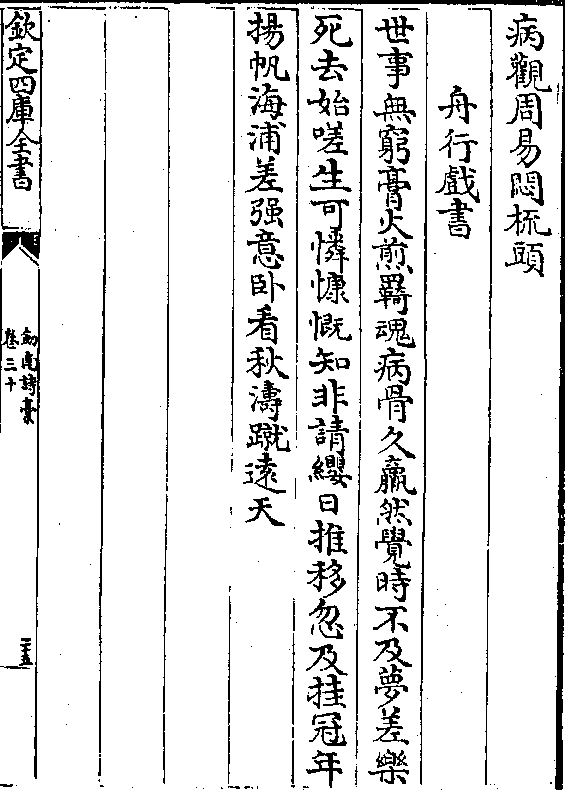 病觀周易悶梳頭
舟行戲書
世事無窮膏火煎羇魂病骨久羸然覺時不及夢差樂
死去始嗟生可憐慷慨知非請纓日推移忽及挂冠年
揚帆海浦差强意卧看秋濤蹴遠天
欽定四庫全書
劍南詩稾
卷三十
二十五